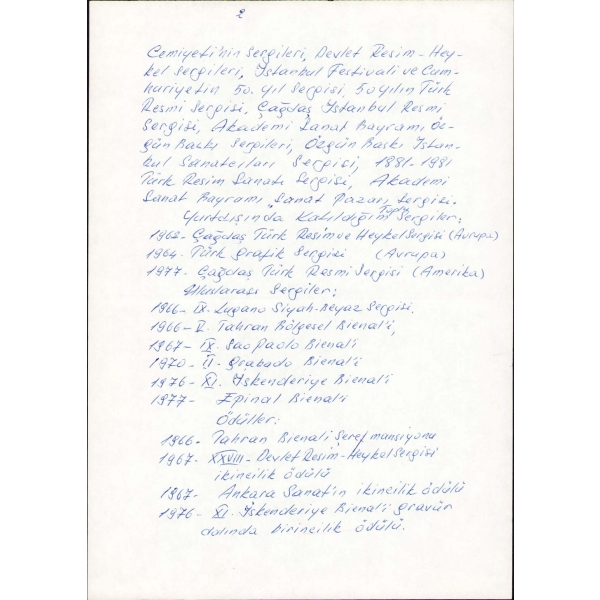 2
Cemiyeti'nin Sergileri, Devlet Resim-Hey-
kel Sergileri, İstanbul Festivali ve Cum-
huriyetin 50. yıl Sergisi, 50 yılın Türk
Resmi Sergisi, Çağdaş İstanbul Resmi
Sergisi, Akademi Sanat Bayramı Öz-
gün Baskı Sergileri, Özgün Baskı İstan-
bul Sanatcıları Sergisi, 1881-1981
Türk Resim Sanatı Sergisi, Akademi
Sanat Bayramı "Sanat Pazarı" Sergisi.
Yurtdışında Katıldığım Toplu Sergiler:
1962- Çağdaş Türk Resim ve Heykel Sergisi (Avrupa)
1964- Türk Grafik Sergisi (Avrupa)
1977- Çağdaş Türk Resmi Sergisi (Amerika)
Uluslarası Sergiler:
1966- IX. Lugano Siyah-Beyaz Sergisi.
1966- V. Tahran Bölgesel Bienal'i,
1967- IX. Sao Paolo Bienal'i
1970- II- Grabado Bienal'i
1976- XI. İskenderiye Bienal'i
1977- Epinal Bienal'i
Ödüller:
1966- Tahran Bienali Şeref mansiyonu
1967- XXVIII- Devlet Resim-Heykel Sergisi
ikincilik ödülü
1967- Ankara Sanat'ın ikincilik ödülü
1976- XI. İskenderiye Bienali gravür
dalında birincilik ödülü.